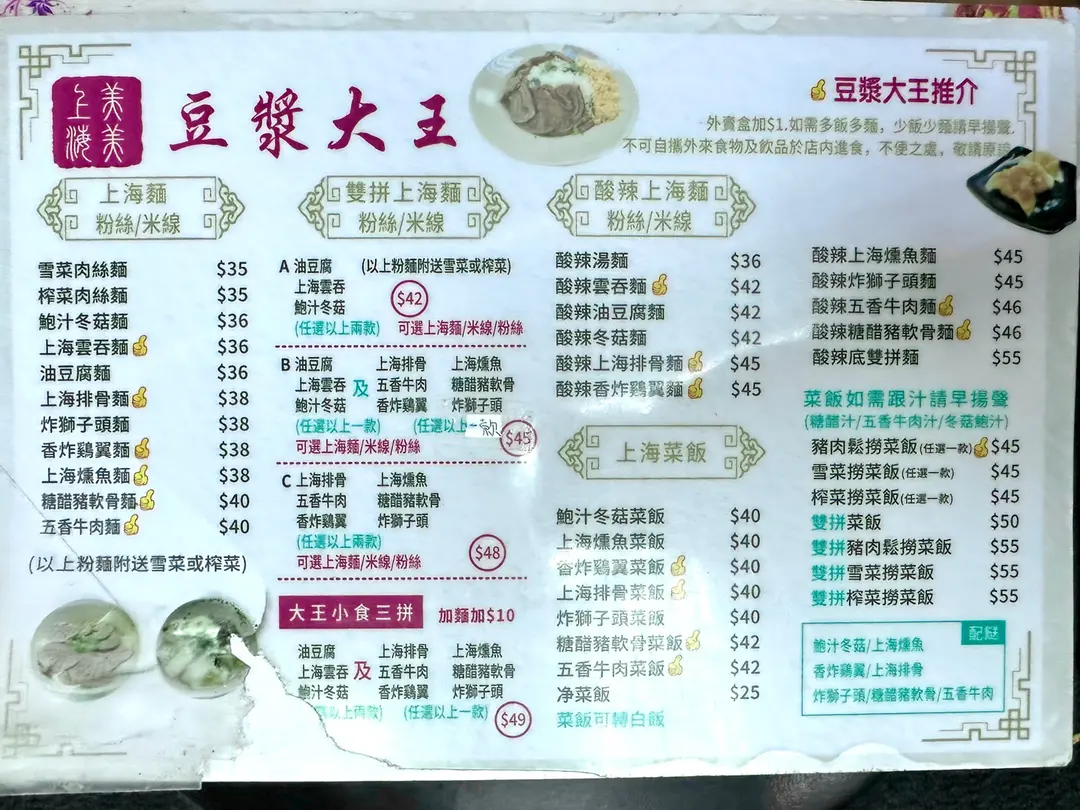 上海
美美
豆漿大王
豆漿大王推介
外賣盒加$1.如需多飯多麵，少飯少麵請早揚聲.
不可自攜外來食物及飲品於店內進食，不便之處，敬請原諒
上海麵
粉絲/米線
雪菜肉絲麵 $35
榨菜肉絲麵 $35
鮑汁冬菇麵 $36
上海雲吞麵 $36
油豆腐麵 $36
上海排骨麵 $38
炸獅子頭麵 $38
香炸鷄翼麵 $38
上海燻魚麵 $38
糖醋豬軟骨麵 $40
五香牛肉麵 $40
(以上粉麵附送雪菜或榨菜)
雙拼上海麵
粉絲/米線
A 油豆腐 (以上粉麵附送雪菜或榨菜)
上海雲吞
鮑汁冬菇 $42
(任選以上兩款) 可選上海麵/米線/粉絲
B 油豆腐 上海排骨 上海燻魚
上海雲吞 及 五香牛肉 糖醋豬軟骨
鮑汁冬菇 香炸鷄翼 炸獅子頭
(任選以上一款) (任選以上一款
可選上海麵/米線/粉絲 $45
C 上海排骨 上海燻魚
五香牛肉 糖醋豬軟骨
香炸鷄翼 炸獅子頭
(任選以上兩款)
可選上海麵/米線/粉絲 $48
大王小食三拼 加麵加$10
油豆腐 上海排骨 上海燻魚
上海雲吞 及 五香牛肉 糖醋豬軟骨
鮑汁冬菇 香炸鷄翼 炸獅子頭
以上兩款) (任選以上一款) $49
酸辣上海麵
粉絲/米線
酸辣湯麵 $36
酸辣雲吞麵 $42
酸辣油豆腐麵 $42
酸辣冬菇麵 $42
酸辣上海排骨麵 $45
酸辣香炸鷄翼麵 $45
酸辣上海燻魚麵 $45
酸辣炸獅子頭麵 $45
酸辣五香牛肉麵 $46
酸辣糖醋豬軟骨麵 $46
酸辣底雙拼麵 $55
上海菜飯
鮑汁冬菇菜飯 $40
上海燻魚菜飯 $40
香炸鷄翼菜飯 $40
上海排骨菜飯 $40
炸獅子頭菜飯 $40
糖醋豬軟骨菜飯 $42
五香牛肉菜飯 $42
净菜飯 $25
菜飯可轉白飯
菜飯如需跟汁請早揚聲
(糖醋汁/五香牛肉汁/冬菇鮑汁)
豬肉鬆撈菜飯(任選一款) $45
雪菜撈菜飯(任選一款) $45
榨菜撈菜飯(任選一款) $45
雙拼菜飯 $50
雙拼豬肉鬆撈菜飯 $55
雙拼雪菜撈菜飯 $55
雙拼榨菜撈菜飯 $55
配餸
鮑汁冬菇/上海燻魚
香炸鷄翼/上海排骨
炸獅子頭/糖醋豬軟骨/五香牛肉